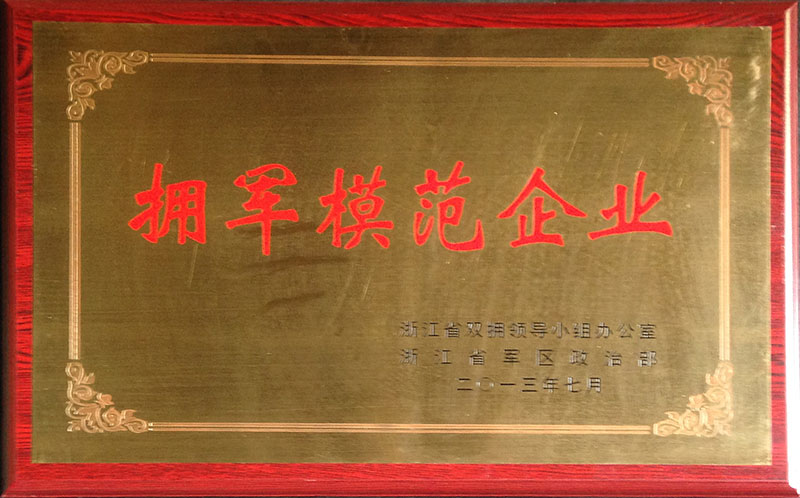 拥军模范企业
浙江省双拥领导小组办公室
浙江省军区政治部
二〇一三年七月